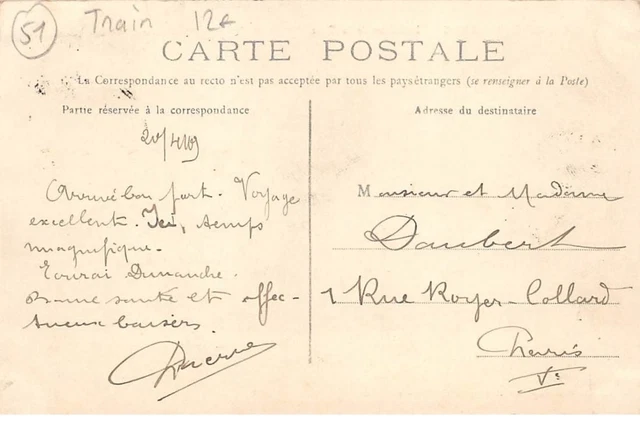 51
Train 12€
CARTE POSTALE
La Correspondance au recto n'est pas acceptée par tous les pays étrangers (se renseigner à la Poste)
Partie réservée à la correspondance
20/4/09
Arrivé bon port. Voyage
excellent. Ici, temps
magnifique.
Ecrirai Dimanche.
Bonne santé et affec-
tueux baisers.
Adresse du destinataire
Monsieur et Madame
Daubert
1 Rue Royer-Collard
Paris
Ve